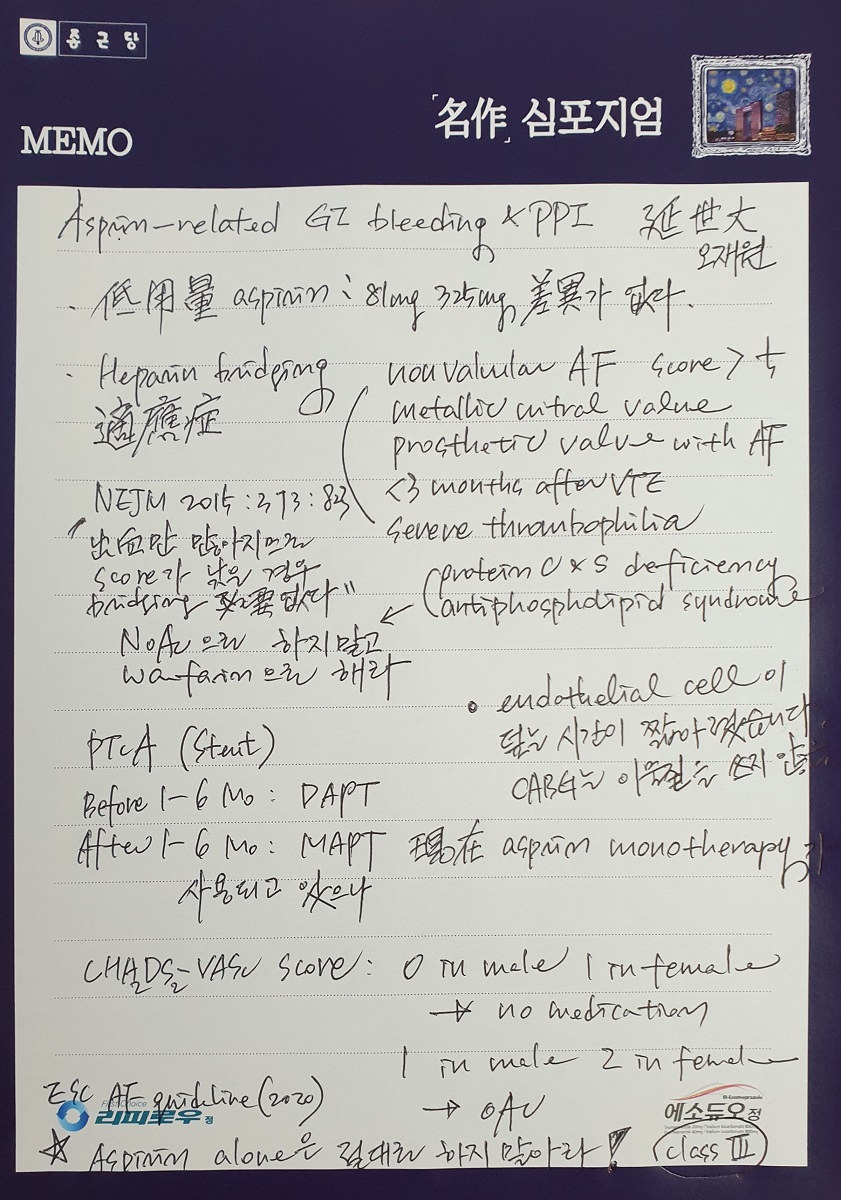 종근당
「名作」 심포지엄
MEMO
Aspirin-related GI bleeding & PPI 延世大
오재원
· 低用量 aspirin : 81mg 325mg 差異가 없다.
· Heparin bridging
適應症
nonvalvular AF score > 5
metallic mitral valve
prosthetic valve with AF
<3 months after VTE
severe thrombophilia
(protein C & S deficiency
antiphospholipid syndrome
NEJM 2015:373:823
"出血만 많아지므로
score가 낮은 경우
bridging 必要없다"
NOAC으로 하지말고
warfarin으로 해라
• endothelial cell이
덮는 시간이 짧아졌습니다
CABG는 이물질을 쓰지
PTCA (Stent)
Before 1-6 Mo : DAPT
After 1-6 Mo : MAPT 現在 aspirin monotherapy가
사용되고 있으나
CHA2DS2-VASc score : 0 in male 1 in female
→ no medication
1 in male 2 in female
→ OAC
ESC AF guideline (2020)
First Choice
리피로우정
에소듀오정
☆ Aspirin alone은 절대로 하지 말아라! class III